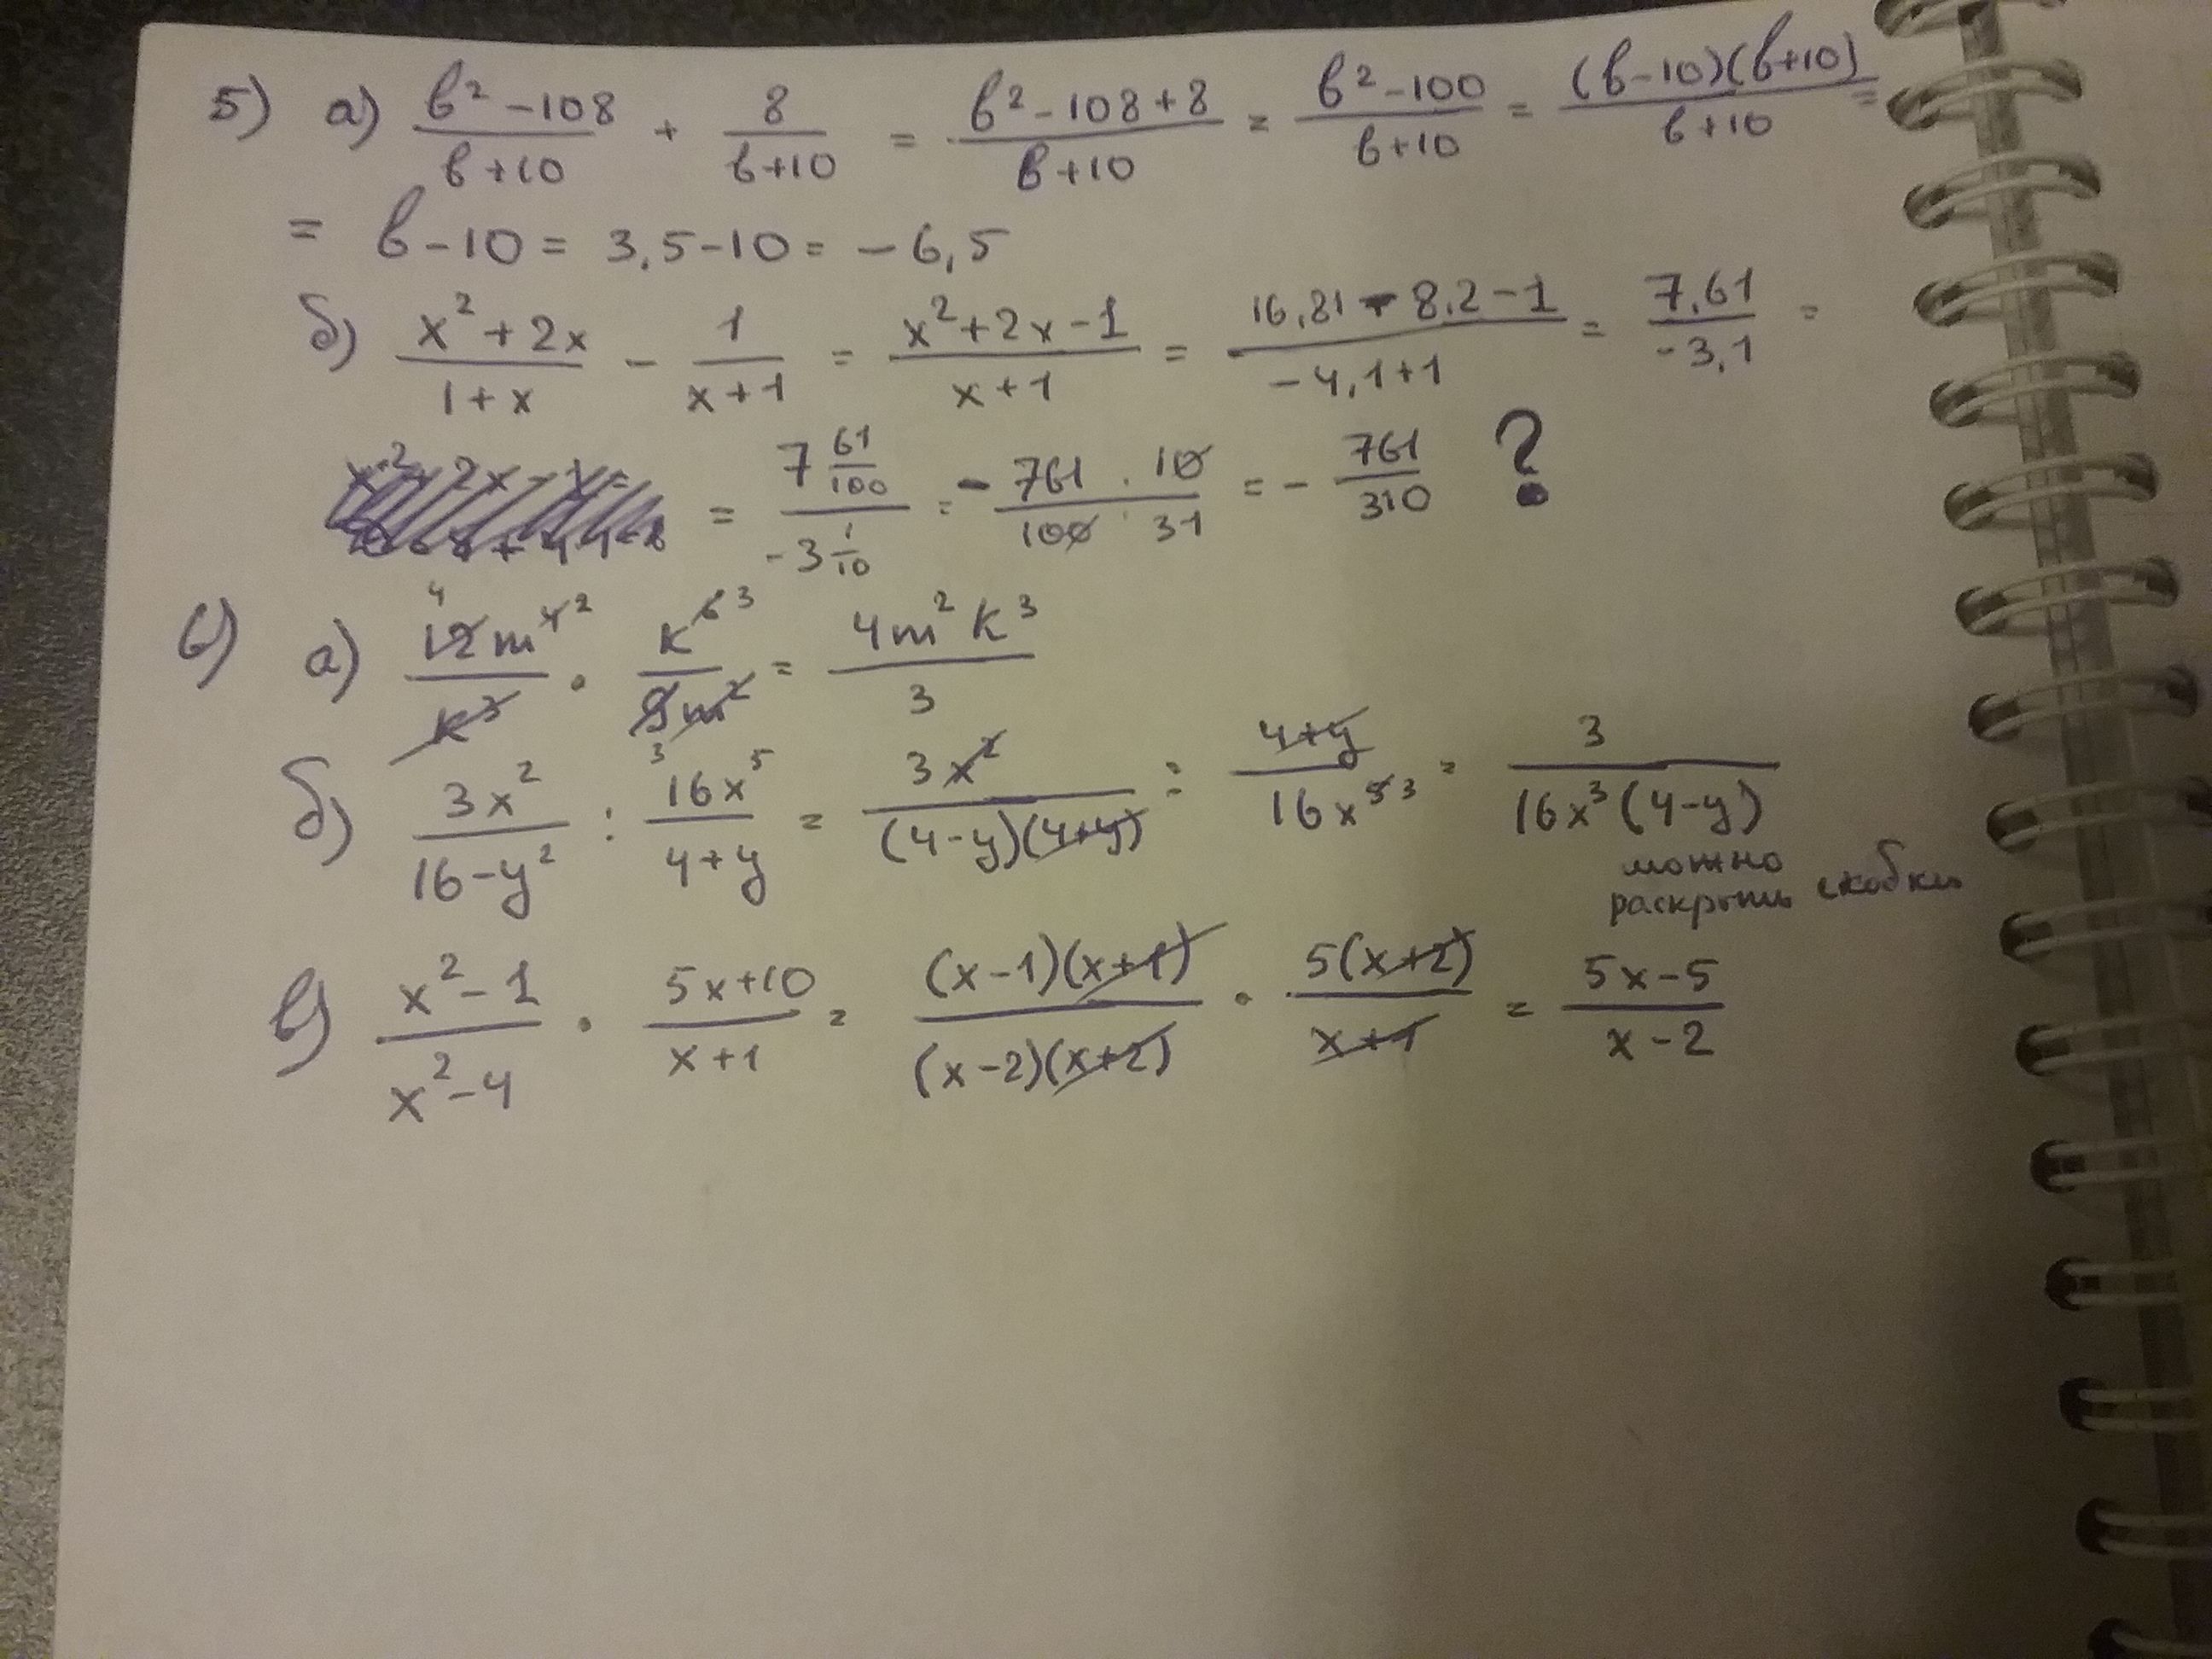 5) а) (b² - 108)/(b + 10) + 8/(b + 10) = (b² - 108 + 8)/(b + 10) = (b² - 100)/(b + 10) = ((b - 10)(b + 10))/(b + 10) =
= b - 10 = 3,5 - 10 = - 6,5
б) (x² + 2x)/(1 + x) - 1/(x + 1) = (x² + 2x - 1)/(x + 1) = (16,81 - 8,2 - 1)/(- 4,1 + 1) = 7,61/(- 3,1) =
= (7 61/100)/(- 3 1/10) = - (761 · 10)/(100 · 31) = - 761/310 ?
6) а) 12m⁴/k³ · k⁶/9m² = 4m²k³/3
б) 3x²/(16 - y²) : 16x⁵/(4 + y) = 3x²/((4 - y)(4 + y)) : (4 + y)/16x⁵ = 3/(16x³(4 - y))
можно
раскрыть скобки
в) (x² - 1)/(x² - 4) · (5x + 10)/(x + 1) = ((x - 1)(x + 1))/((x - 2)(x + 2)) · 5(x + 2)/(x + 1) = (5x - 5)/(x - 2)